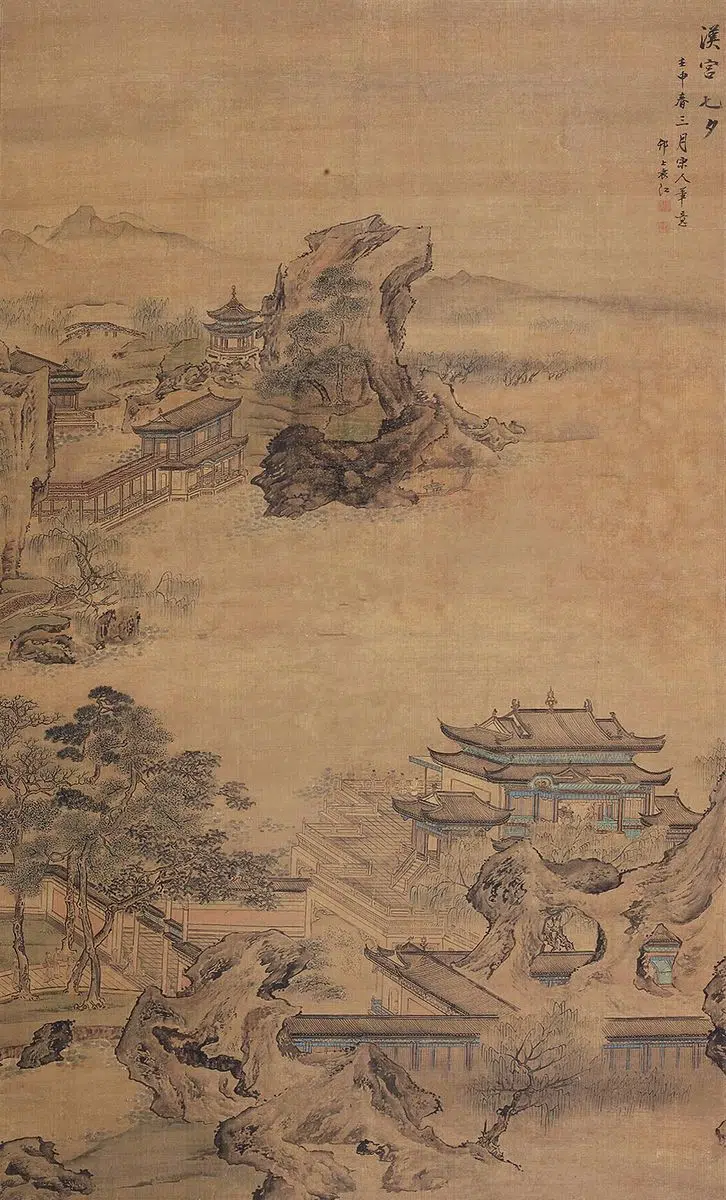 漢宮七夕
壬申春三月宋人筆意
邗上袁江